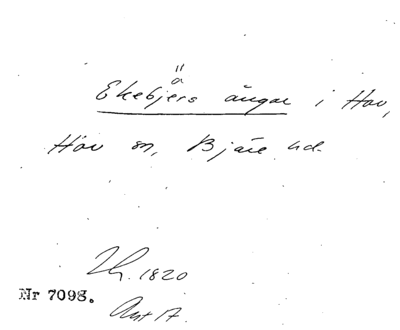 ä
Ekebjers ängar i Hov,
Hov sn, Bjäre hd.
Th. 1820
Nr 7098.
Ant 17.